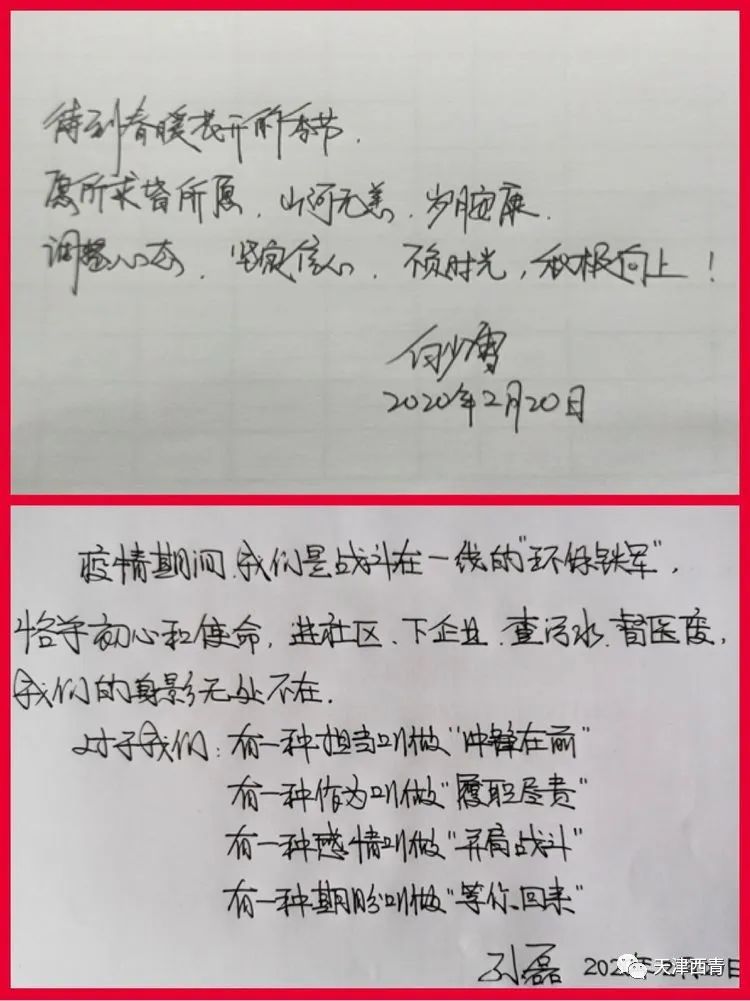 待到春暖花开的季节.
愿所求皆所愿.山河无恙.岁月安康.
调整心态.坚定信心.不负时光,积极向上!
付少雪
2020年2月20日
疫情期间.我们是战斗在一线的"环保铁军",
恪守初心和使命,进社区、下企业.查污水.督医废,
我们的身影无处不在.
对于我们:有一种担当叫做"冲锋在前"
有一种作为叫做"履职尽责"
有一种感情叫做"并肩战斗"
有一种期盼叫做"等你回来"
孙磊 202
天津西青